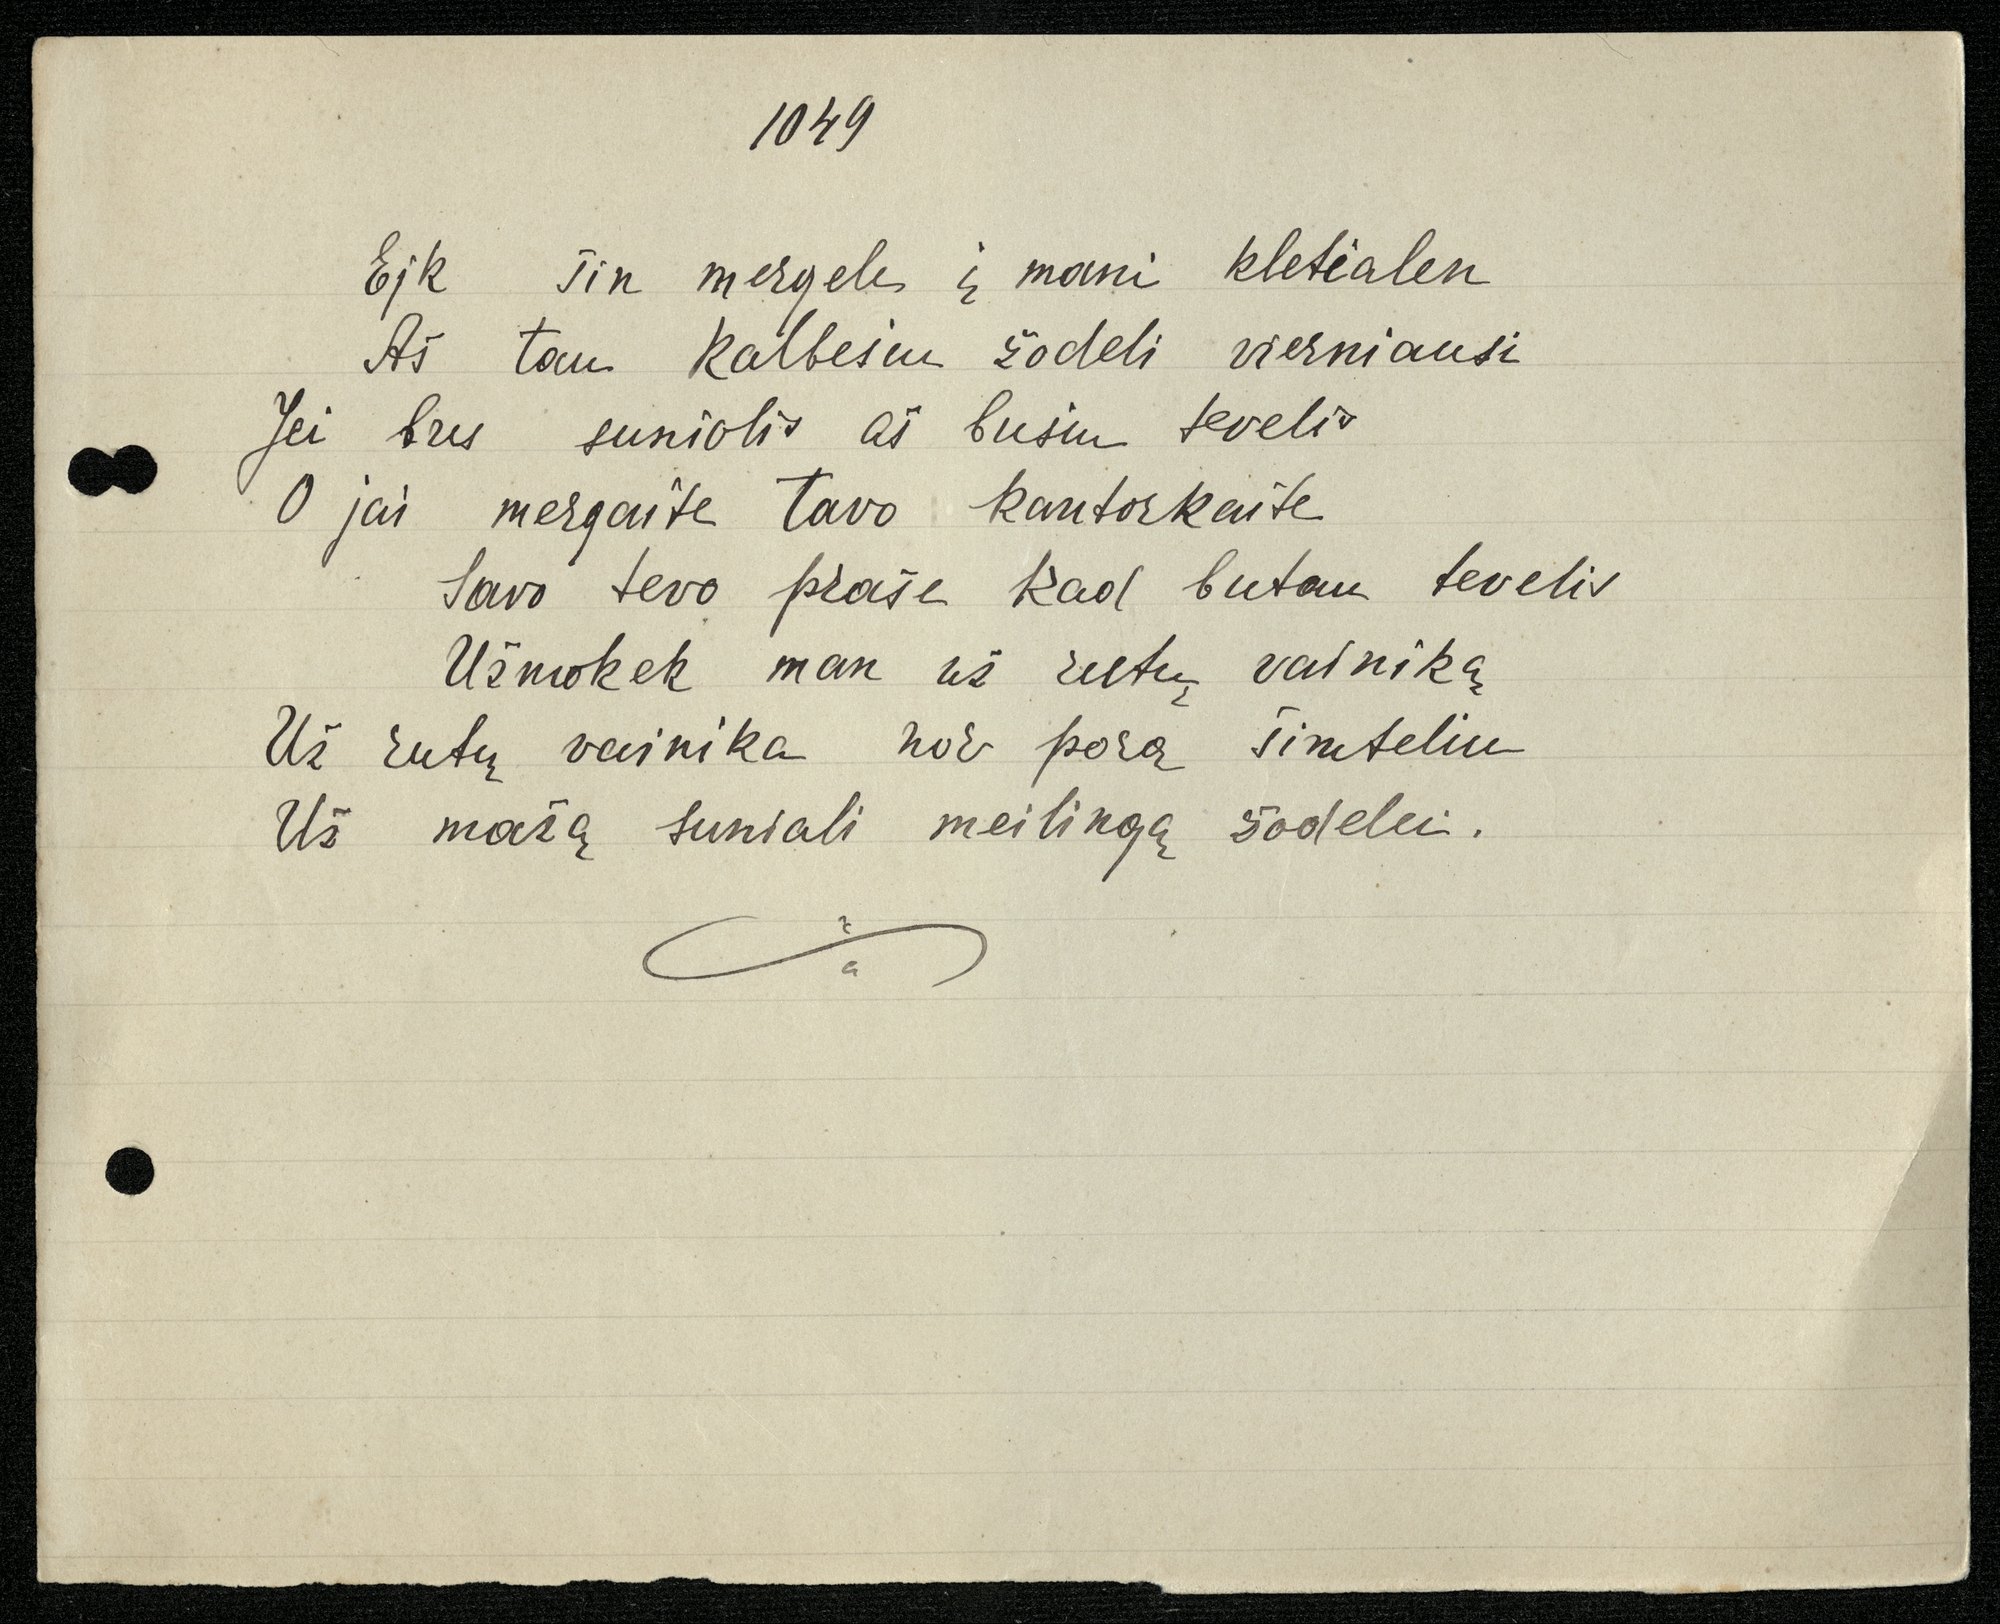 1049
Ejk šin mergele į mani kletialen
Aš tau kalbesiu žodeli vierniausi
Jei bus suniolis aš busiu tevelis
O jai mergaite tavo kantorkaite
Savo tevo praše kad butau tevelis
Užmokek man už rutų vainiką
Už rutų vainika nor porą šimteliu
Už mažą suniali meilingą žodelei.